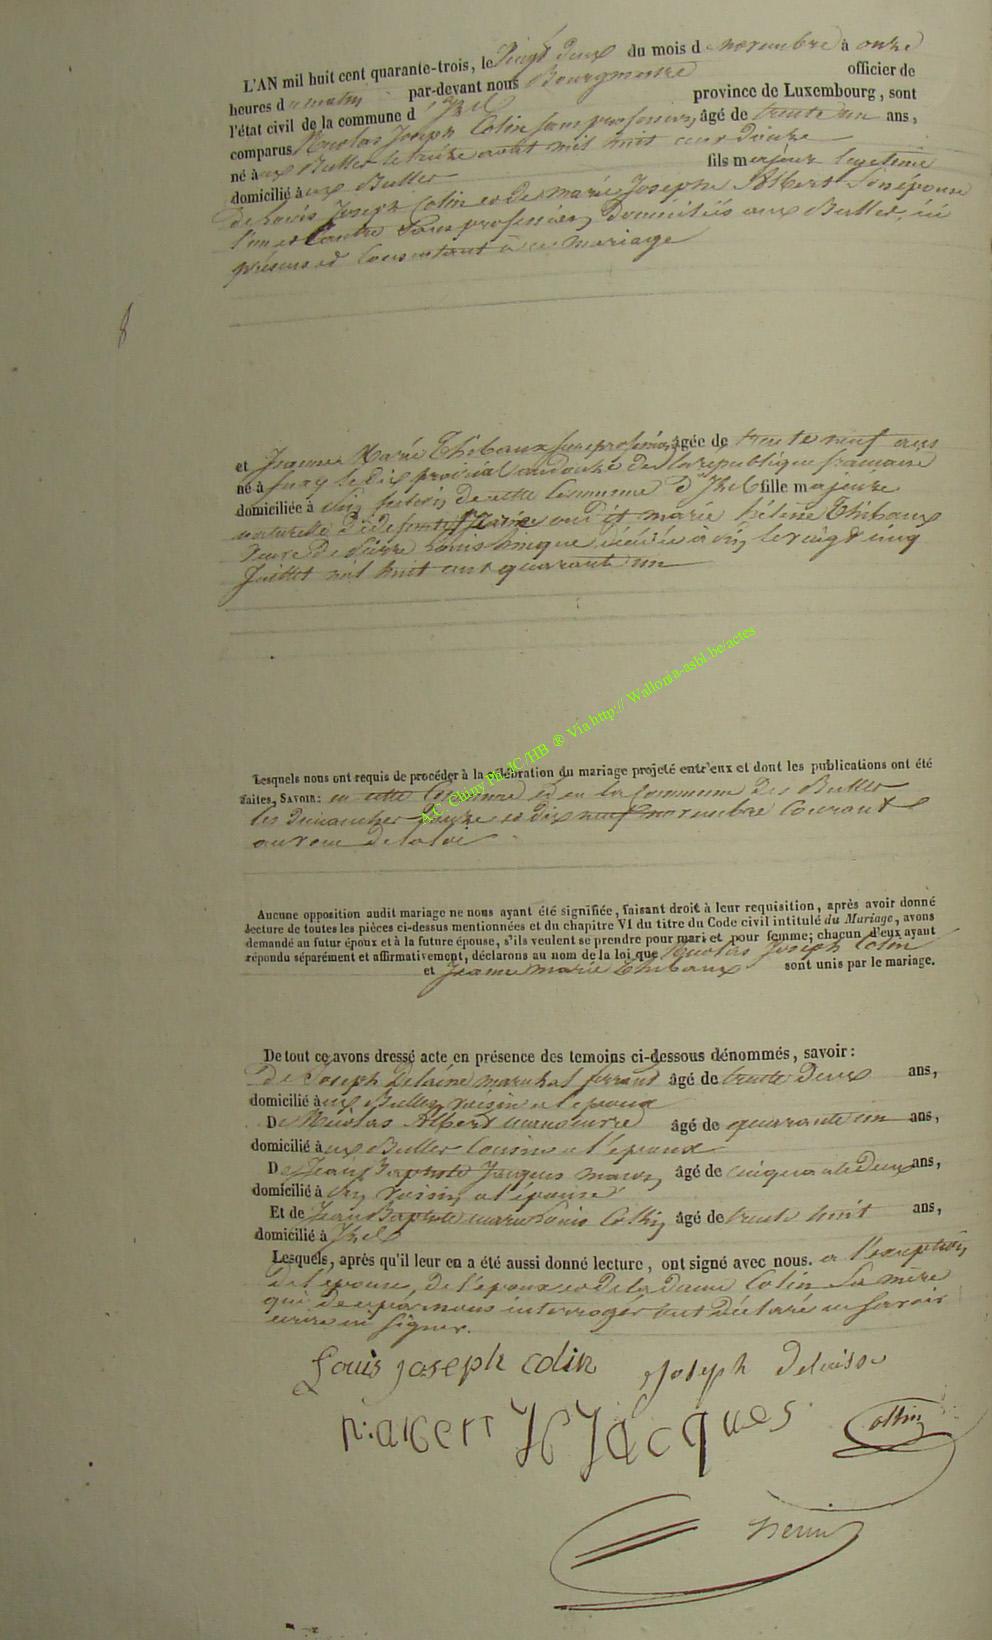 L'AN mil huit cent quarante-trois, le Vingt deux du mois d e novembre à onze
heures d u matin par-devant nous Bourgmestre officier de
l'état civil de la commune d' Izel province de Luxembourg, sont
comparus Nicolas Joseph Colin sans profession, âgé de trente un ans,
né à ux Bulles le treize août mil huit cent douze
domicilié à ux Bulles fils majeur légitime
de Louis Joseph Colin et de marie Josephe Albert Son épouse
l'un et l'autre sans profession, Domiciliés aux Bulles, ici
présens et Consentant à ce mariage
8
et Jeanne Marie Thibaux sans profession, âgée de trente neuf ans
né à le dix prairial an douze de la république francaise
domiciliée à de cette Commune d'Izel fille majeure
naturelle de défunte marie hélène Thibaux
veuve de Pierre Louis décédée à le vingt cinq
Juillet mil huit cent quarante un
Lesquels nous ont requis de procéder à la célébration du mariage projeté entr'eux et dont les publications ont été
faites, SAVOIR: en cette Commune et en la Commune des Bulles
les dimanches douze et dix neuf novembre Courant
au vœu de la loi
A.C. Chiny Ph. JC/HB ® Via http:// Wallonia-asbl.be/actes
Aucune opposition audit mariage ne nous ayant été signifiée, faisant droit à leur requisition, après avoir donné
lecture de toutes les pièces ci-dessus mentionnées et du chapitre VI du titre du Code civil intitulé du Mariage, avons
demandé au futur époux et à la future épouse, s'ils veulent se prendre pour mari et pour femme; chacun d'eux ayant
répondu séparément et affirmativement, déclarons au nom de la loi que Nicolas Joseph Colin
et Jeanne marie Thibaux sont unis par le mariage.
De tout ce avons dressé acte en présence des temoins ci-dessous dénommés, savoir:
De Joseph Delaine maréchal ferrant âgé de trente Deux ans,
domicilié à ux Bulles, voisin à l'époux
De Nicolas Albert manoeuvre âgé de quarante un ans,
domicilié à ux Bulles Cousin à l'époux
De Jean Baptiste Jacques maçon, âgé de cinquante Deux ans,
domicilié à voisin à l'épouse
Et de Jean Baptiste marie Louis Collin, âgé de trente huit ans,
domicilié à Izel
Lesquels, après qu'il leur en a été aussi donné lecture, ont signé avec nous. à l'exception
de l'épouse, de l'époux et de la Dame Colin Sa mère
qui de ce par nous interrogés ont déclaré ne Savoir
écrire ni Signer.
Louis joseph colin Joseph Delaisse
n: alBert JB JACques Collin
henin